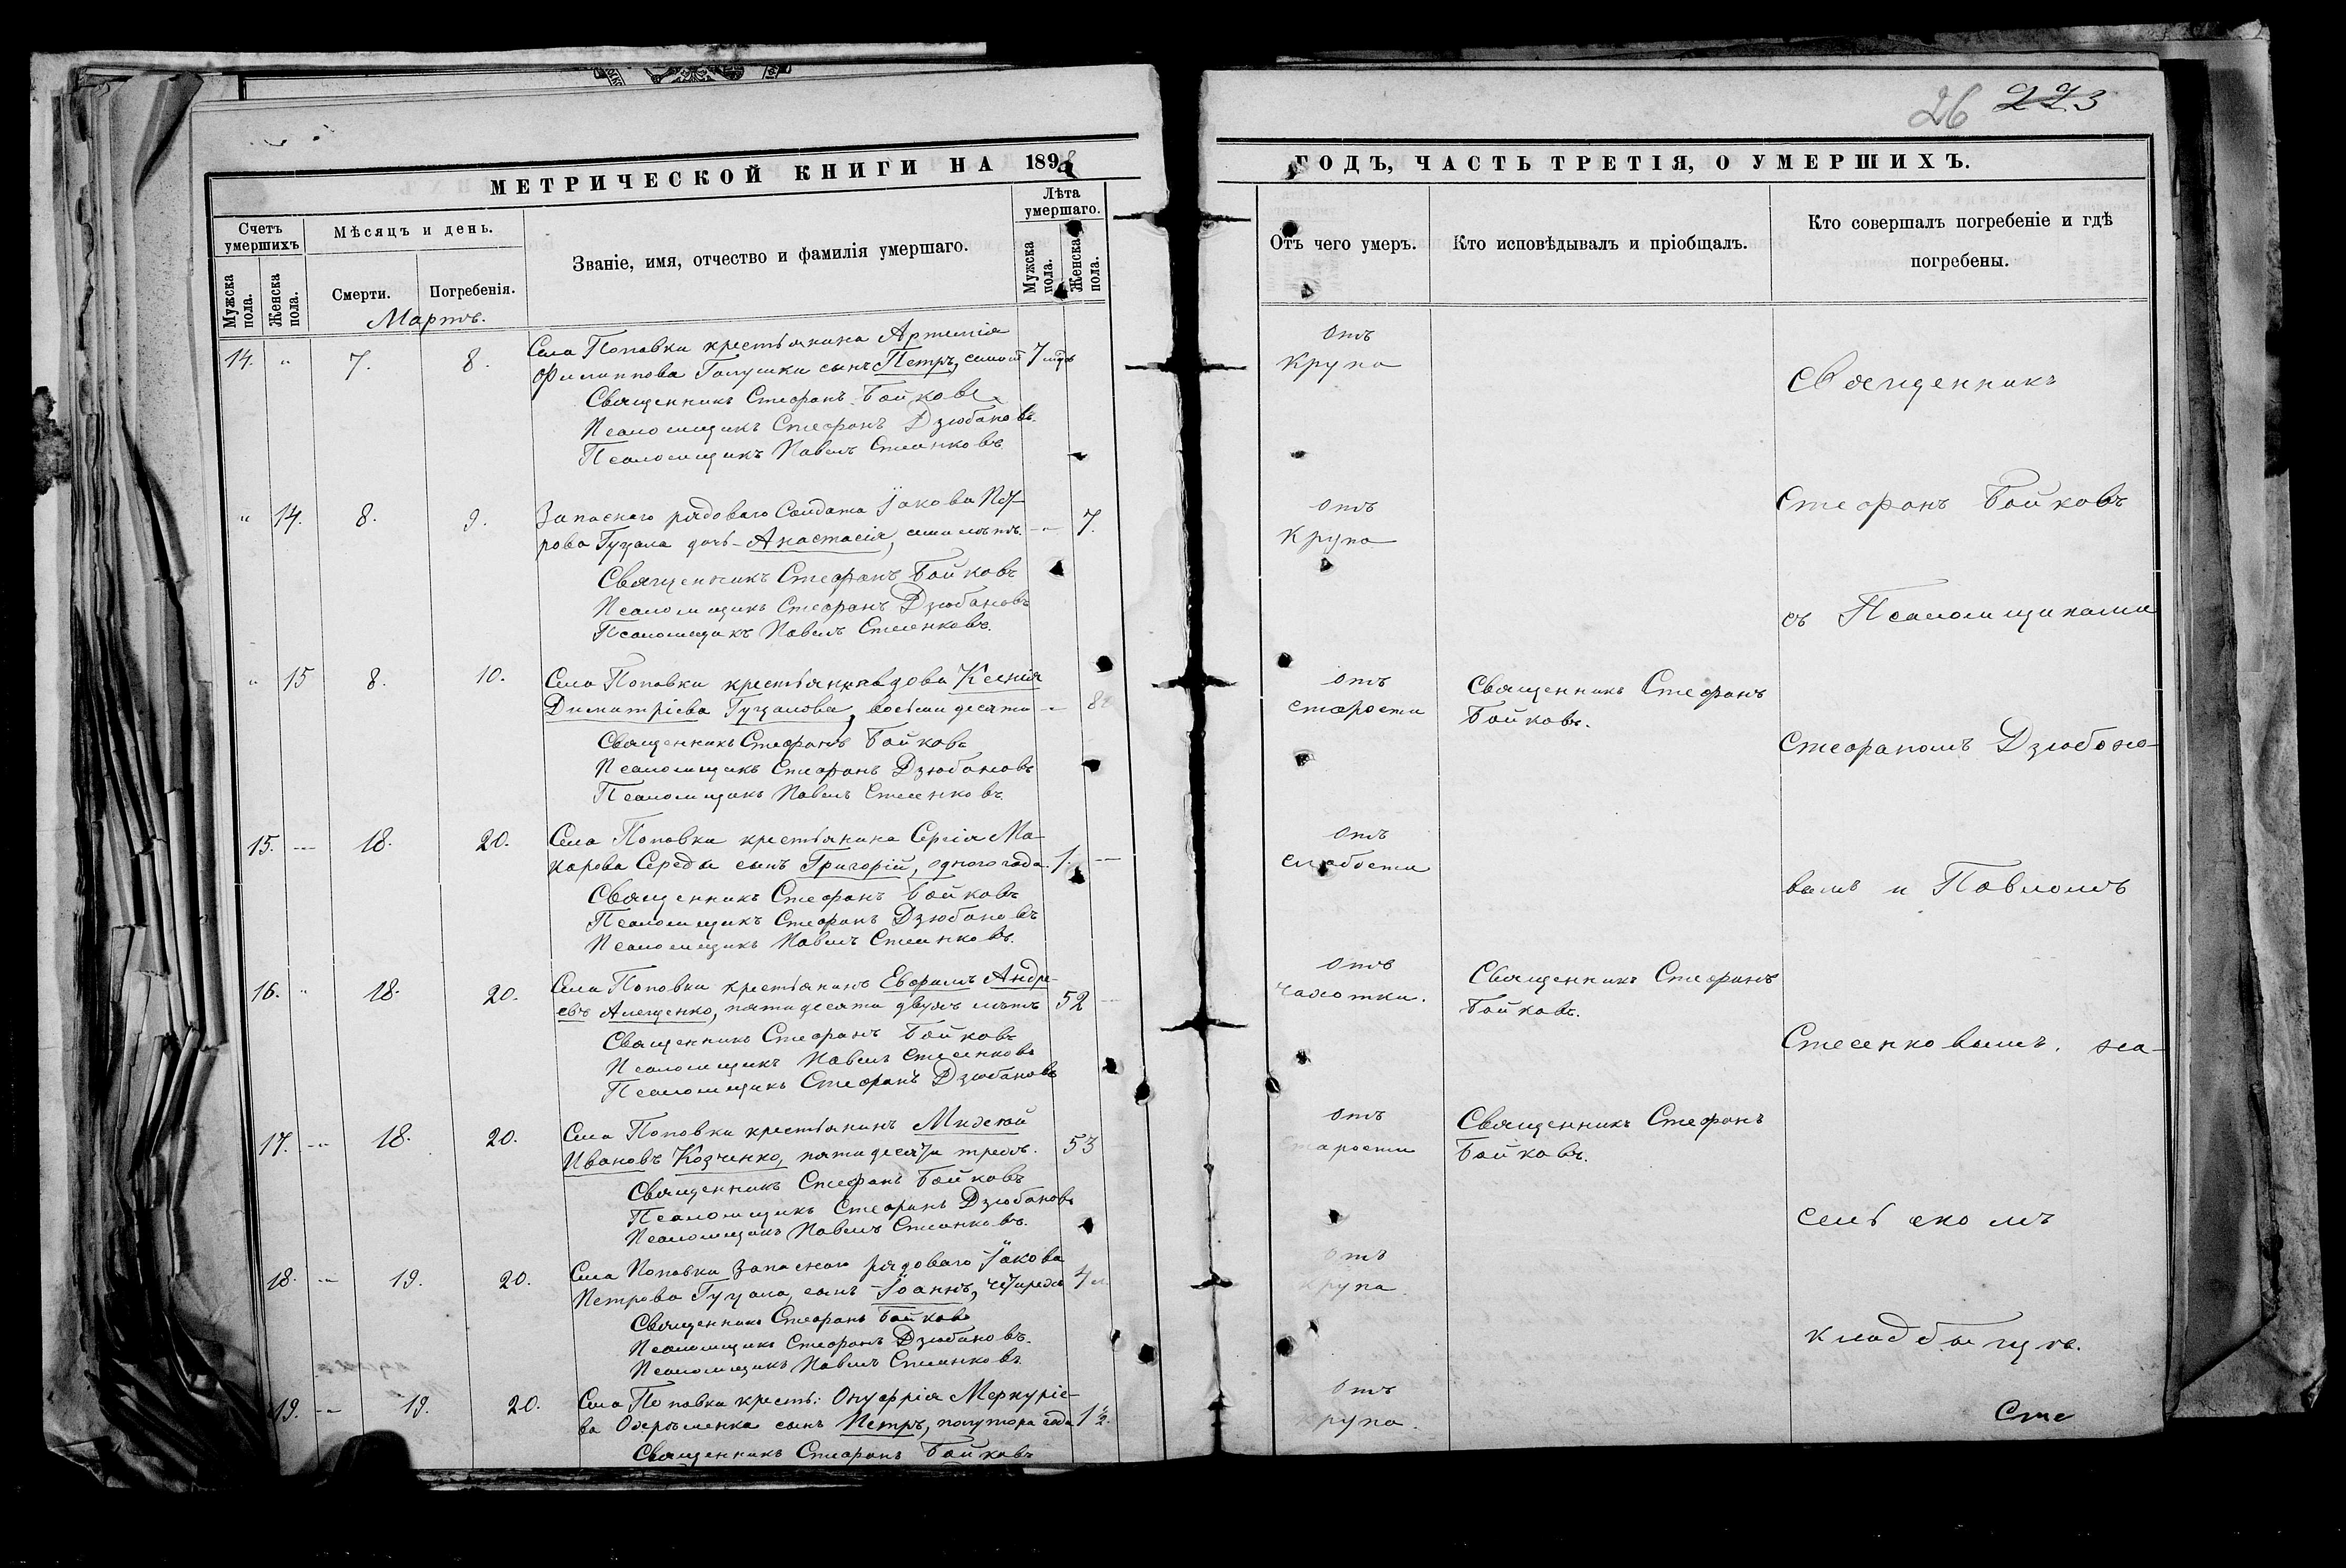 26 223
МЕТРИЧЕСКОЙ КНИГИ НА 1898
ГОДЪ, ЧАСТЬ ТРЕТІЯ, О УМЕРШИХЪ.
Счетъ умершихъ
Мѣсяцъ и день.
Званіе, имя, отчество и фамилія умершаго.
Лѣта умершаго.
Мужска пола.
Женска пола.
Смерти.
Погребенія.
Мужска пола.
Женска пола.
Отъ чего умеръ.
Кто исповѣдывалъ и пріобщалъ.
Кто совершалъ погребеніе и гдѣ
погребены.
Мартъ.
14. " 7. 8. Села Поповки крестьянина Артемія
Филиппова Галушки сынъ Петръ, семи 7
Священникъ Стефанъ Бойковъ
Псаломщикъ Стефанъ Дзюбановъ
Псаломщикъ Павелъ Стеенковъ
Отъ
крупа
" 14. 8. 9. Запаснаго рядоваго Солдата Іакова Пет-
рова Гуцала дочь Анастасія, семи лѣтъ. 7.
Священникъ Стефанъ Бойковъ
Псаломщикъ Стефанъ Дзюбановъ
Псаломщикъ Павелъ Стеенковъ.
Отъ
крупа
" 15 8. 10. Села Поповки крестьянка вдова Ксенія
Димитріева Гуцалова, восьмидесяти 80
Священникъ Стефанъ Бойковъ
Псаломщикъ Стефанъ Дзюбановъ
Псаломщикъ Павелъ Стеенковъ
Отъ
старости
Священникъ Стефанъ
Бойковъ.
15. 18. 20. Села Поповки крестьянина Сергія Ма-
карова Середы сынъ Григорій, одного года. 1.
Священникъ Стефанъ Бойковъ
Псаломщикъ Стефанъ Дзюбановъ
Псаломщикъ Павелъ Стеенковъ.
Отъ
слабости
16. " 18. 20. Села Поповки крестьянинъ Евфимъ Андре-
евъ Алещенко, пятидесяти двухъ лѣтъ 52
Священникъ Стефанъ Бойковъ
Псаломщикъ Павелъ Стеенковъ
Псаломщикъ Стефанъ Дзюбановъ
Отъ
чахотки.
Священникъ Стефанъ
Бойковъ.
17. 18. 20. Села Поповки крестьянинъ
Ивановъ Козченко, пятидесяти трехъ. 53
Священникъ Стефанъ Бойковъ
Псаломщикъ Стефанъ Дзюбановъ
Псаломщикъ Павелъ Стеенковъ.
Отъ
старости
Священникъ Стефанъ
Бойковъ.
18. 19. 20. Села Поповки Запаснаго рядоваго Іакова
Петрова Гуцала, сынъ Іоаннъ, четырехъ 4
Священникъ Стефанъ Бойковъ
Псаломщикъ Стефанъ Дзюбановъ.
Псаломщикъ Павелъ Стеенковъ
Отъ
крупа.
19. 19. 20. Села Поповки кресть: Онуфрія Меркуріе-
ва сынъ Петръ, полутора года 1½.
Священникъ Стефанъ Бойковъ
Отъ
крупа.
Священникъ
Стефанъ Бойковъ
съ Псаломщиками
Стефаномъ Дзюбано-
вымъ и Павломъ
Стеенковымъ. на
сельскомъ
кладбищѣ.
Сте